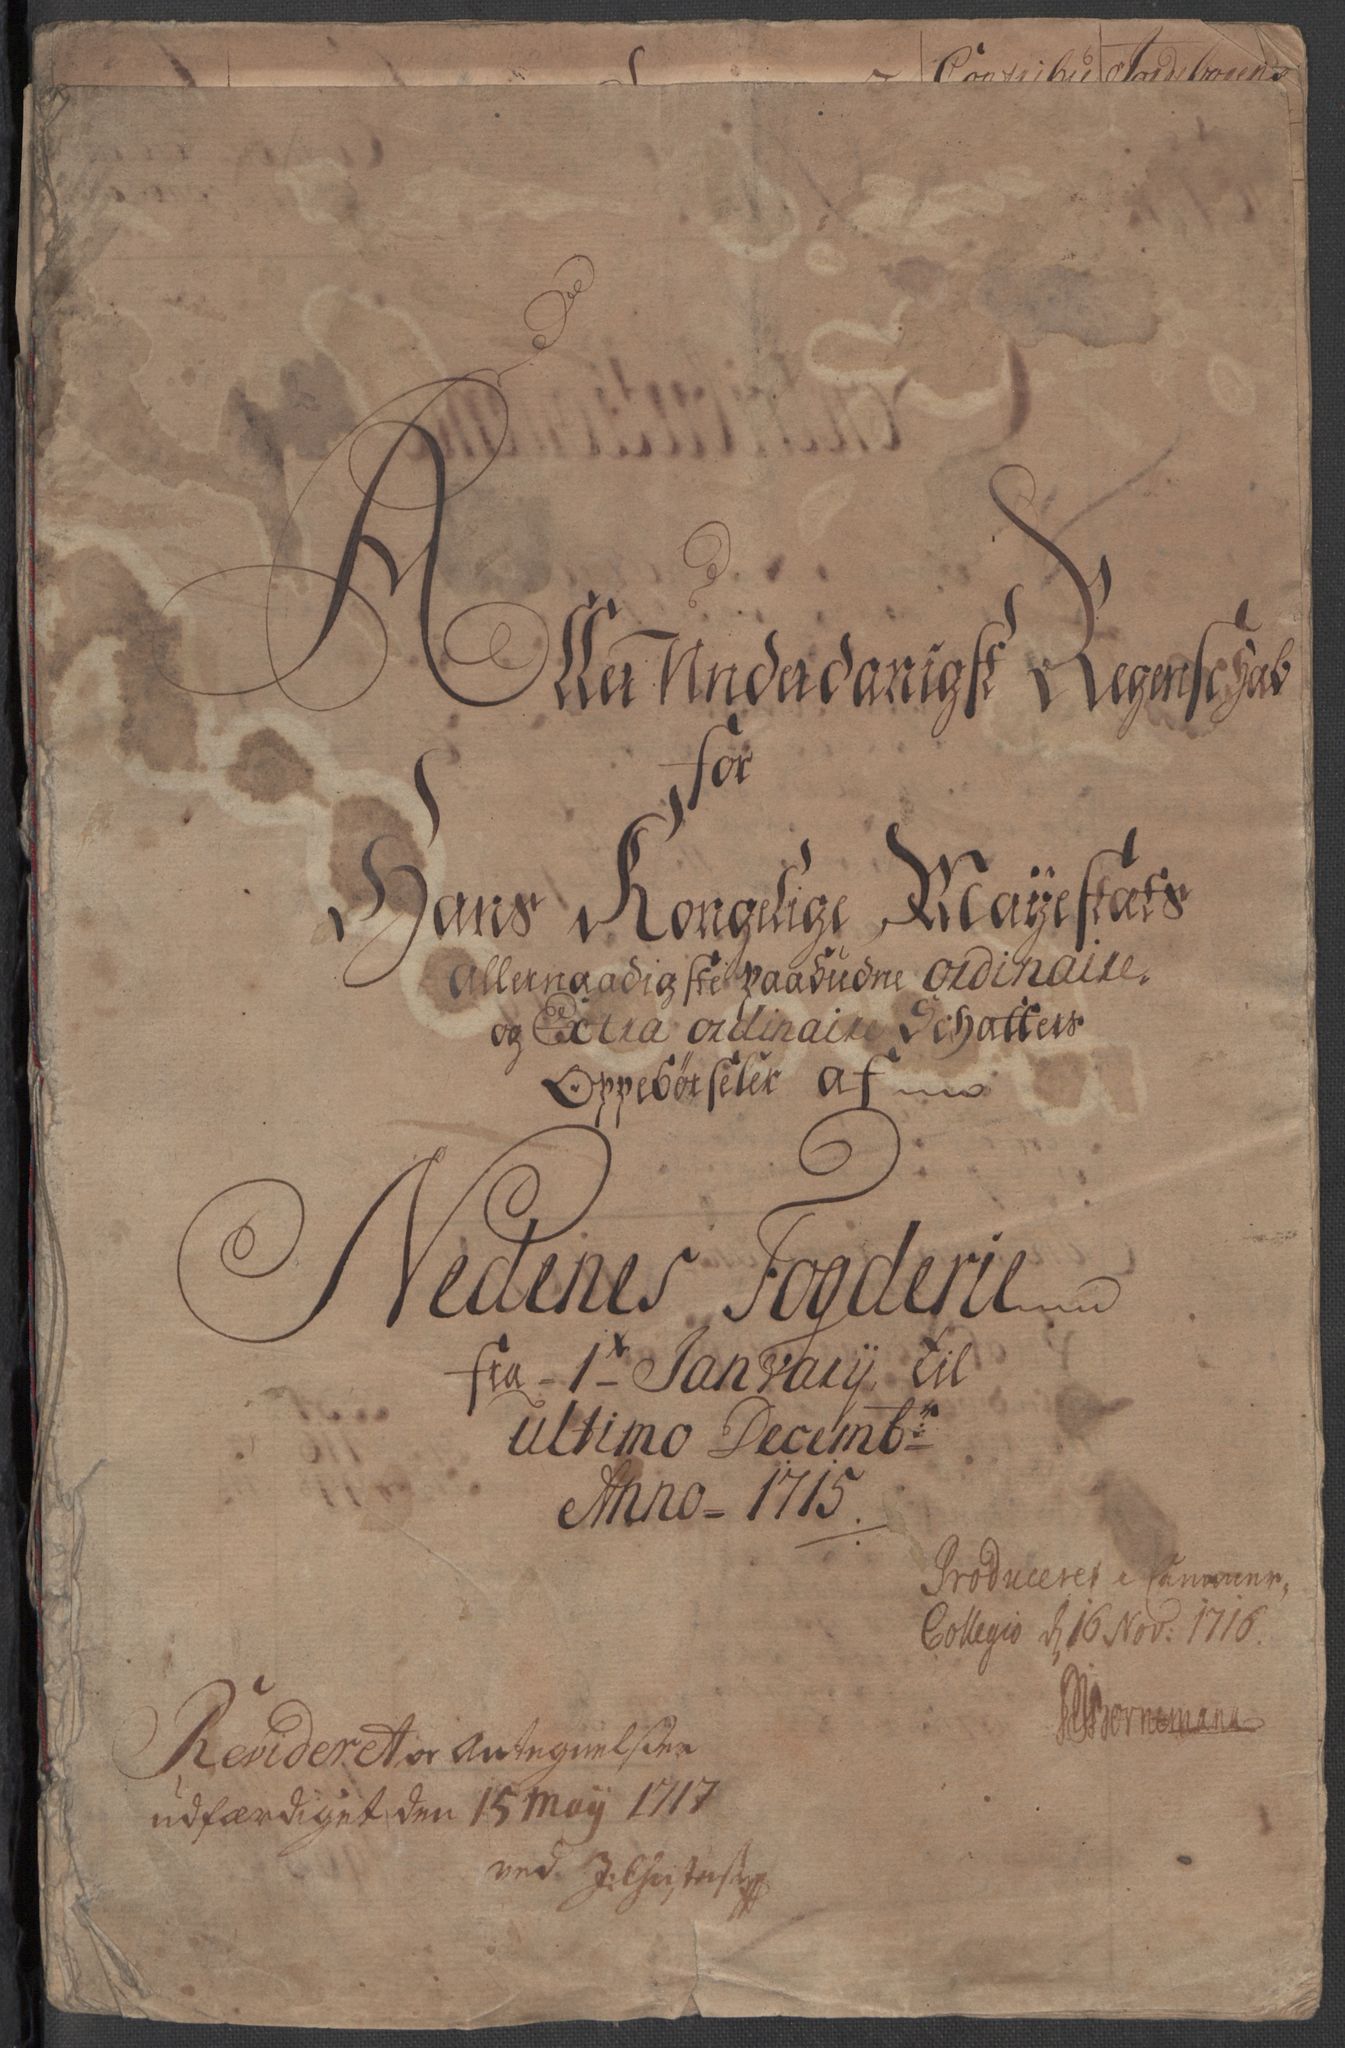 Contribu Jordebogens
Aller Underdanigst Regenschab
for
Hans Kongelige Mayestats
allernaadigste paabudne ordinaire.
og Extra ordinaire Schatters
Oppebørseler af
Nedenes Fogderie
fra - 1t - Janvarij til
ultimo Decembr:
Anno - 1715.
Produceret i Cammer,
Collegio d 16 Nov: 1716.
Bornemann
Revideret og Antegnelsen
udfærdiget den 15 Maij 1717
ved J: Christens